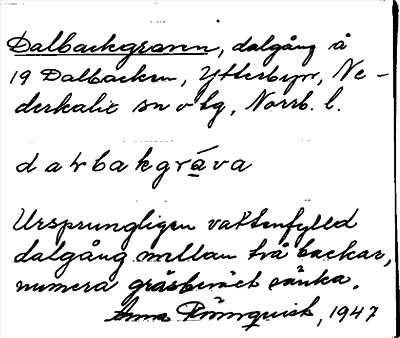 Dalbackgraven, dalgång å
19 Dalbacken, Ytterbyn, Ne-
derkalix sn o tg, Norrb. l.
dalbakgráva
Ursprungligen vattenfylld
dalgång mellan två backar,
numera gräsbeväxt sänka.
Anna Rönnquist, 1947